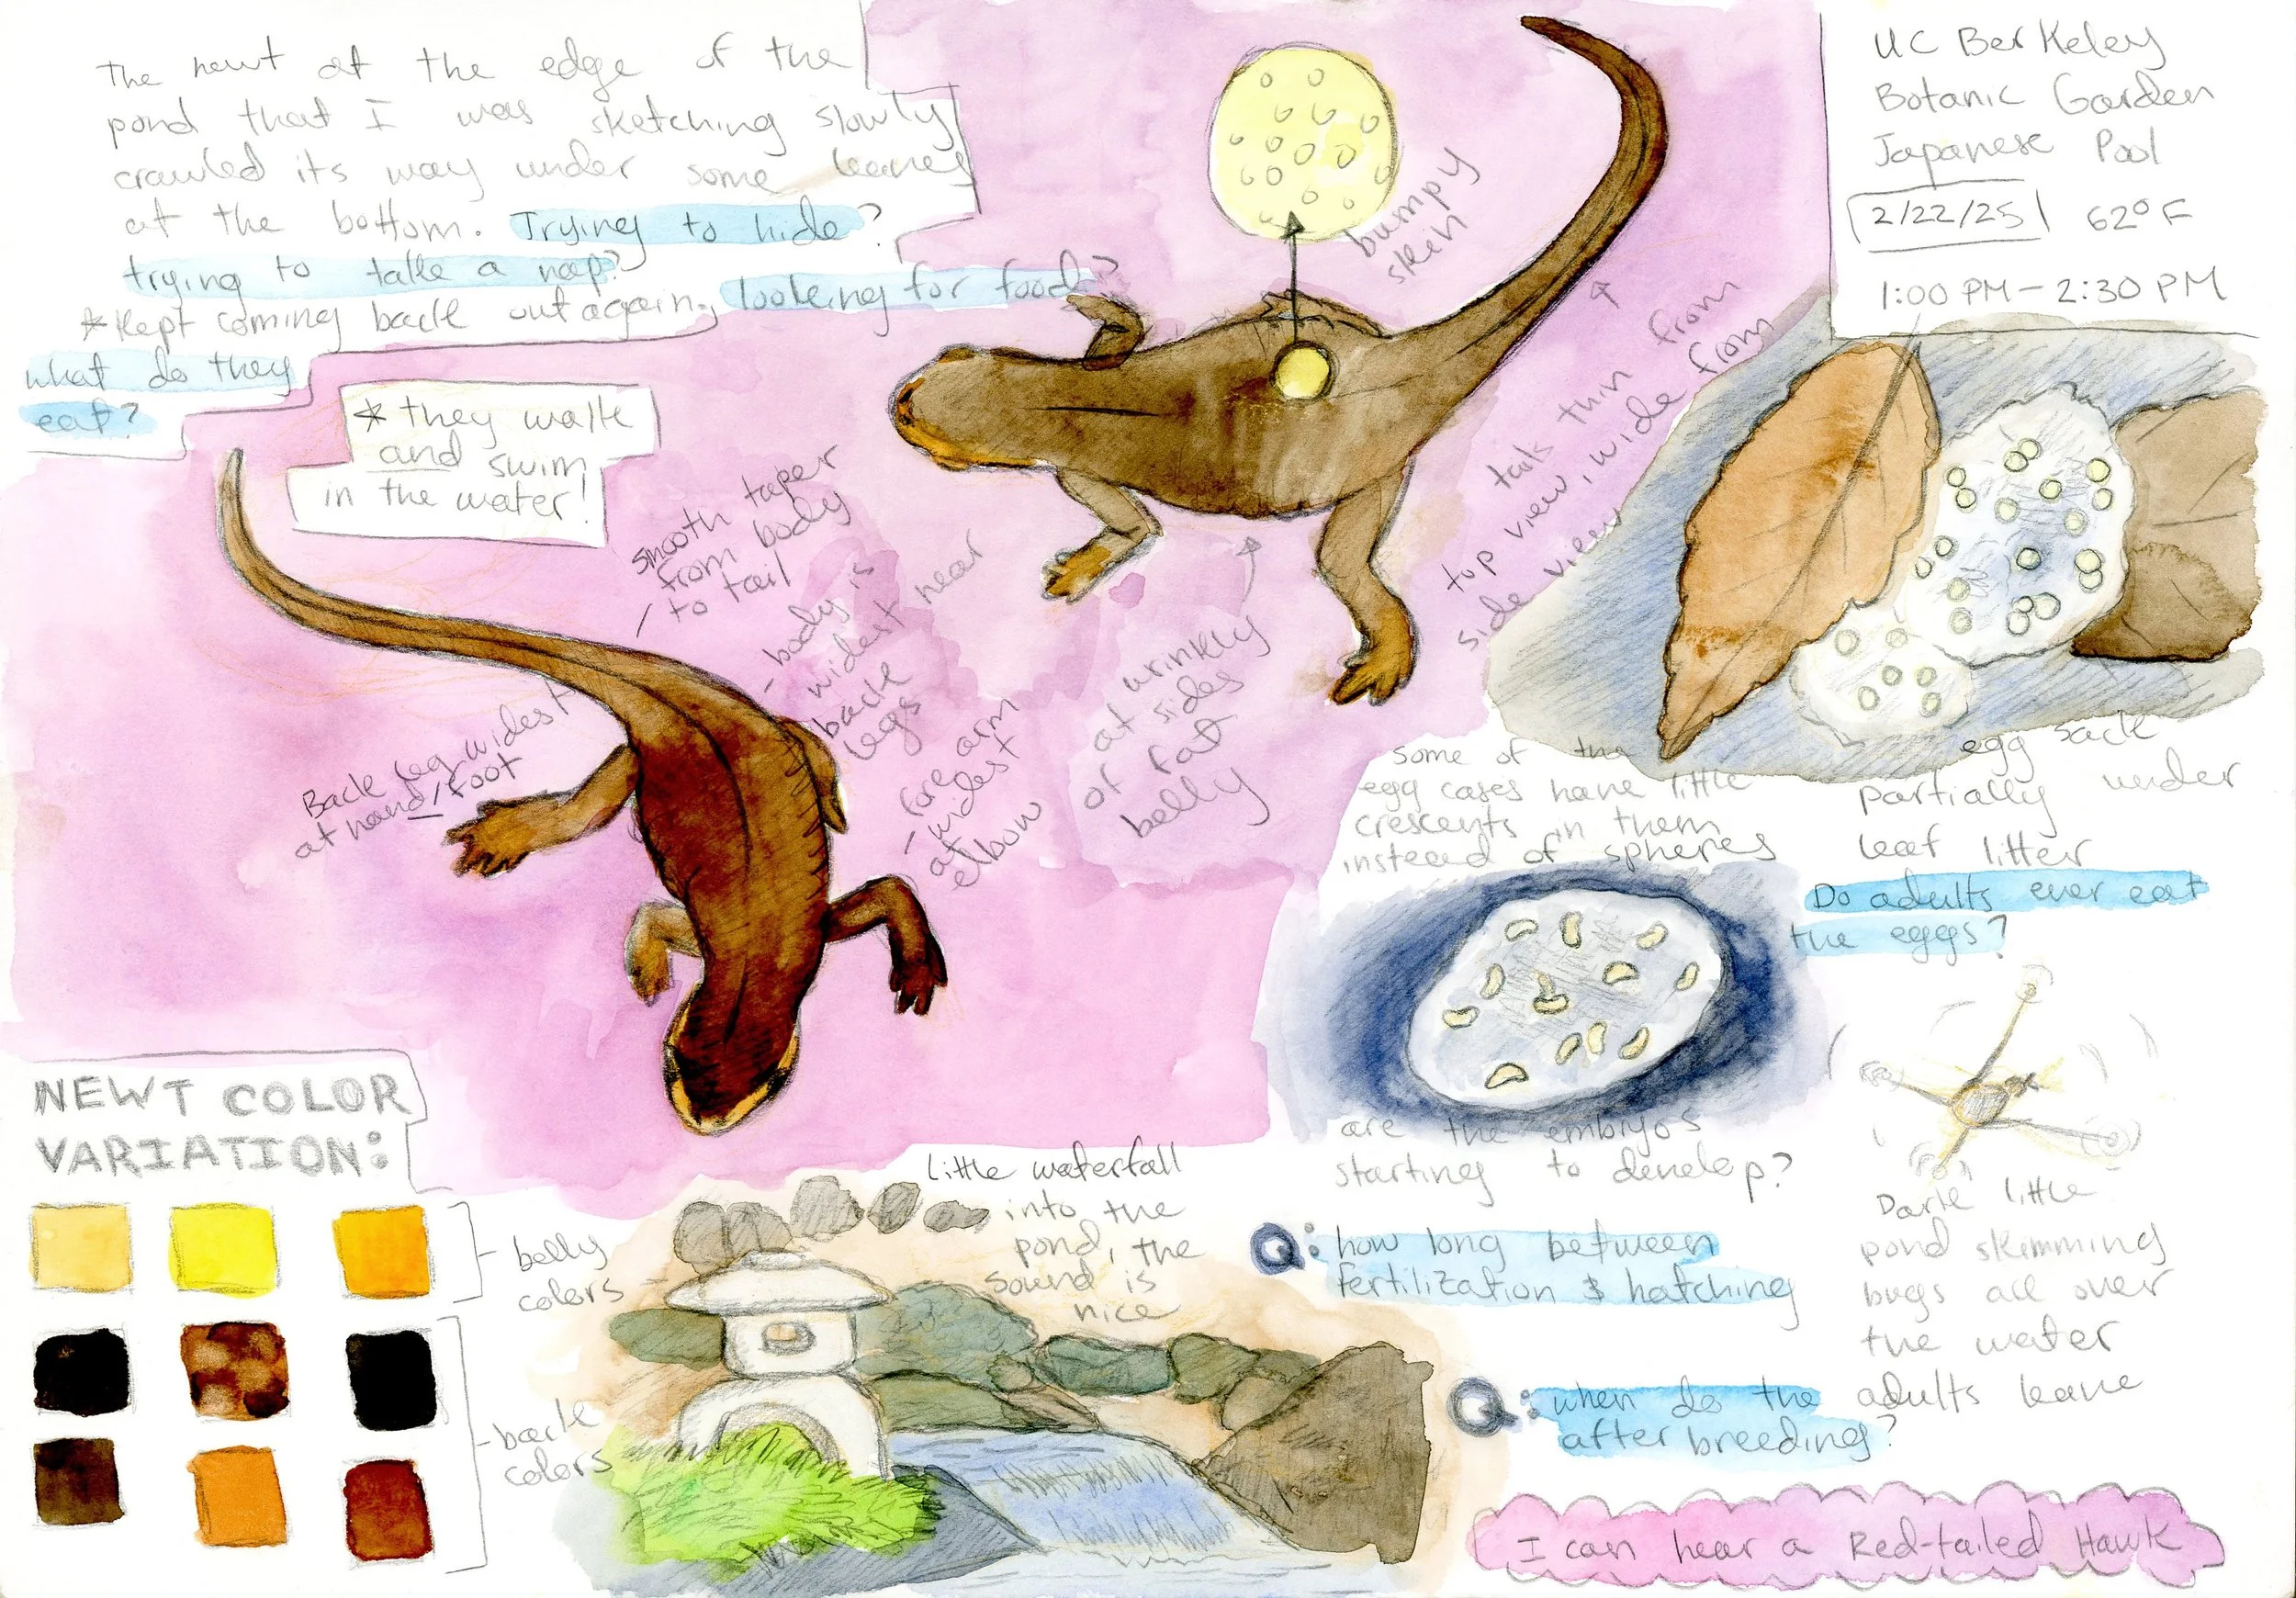 The newt at the edge of the
pond that I was sketching slowly
crawled its way under some leaves
at the bottom. Trying to hide?
trying to take a nap?
*Kept coming back out again. looking for food?
what do they
eat?
* they walk
and swim
in the water!
bumpy
skin
UC Berkeley
Botanic Garden
Japanese Pool
2/22/25 62°F
1:00 PM - 2:30 PM
tails thin from
top view, wide from
side view
smooth taper
from body
to tail
- body is
widest near
back
legs
Back leg widest
at hand/foot
fore arm
- widest
at
elbow
wrinkly
at sides
of fat
belly
some of the
egg cases have little
crescents in them
instead of spheres
are the embryos
starting to develop?
egg sack
partially under
leaf litter
Do adults ever eat
the eggs?
Dark little
pond skimming
bugs all over
the water
Q: how long between
fertilization & hatching
Q: when do the adults leave
after breeding?
I can hear a Red-tailed Hawk
little waterfall
into the
pond, the
sound is
nice
NEWT COLOR
VARIATION:
belly
colors
back
colors